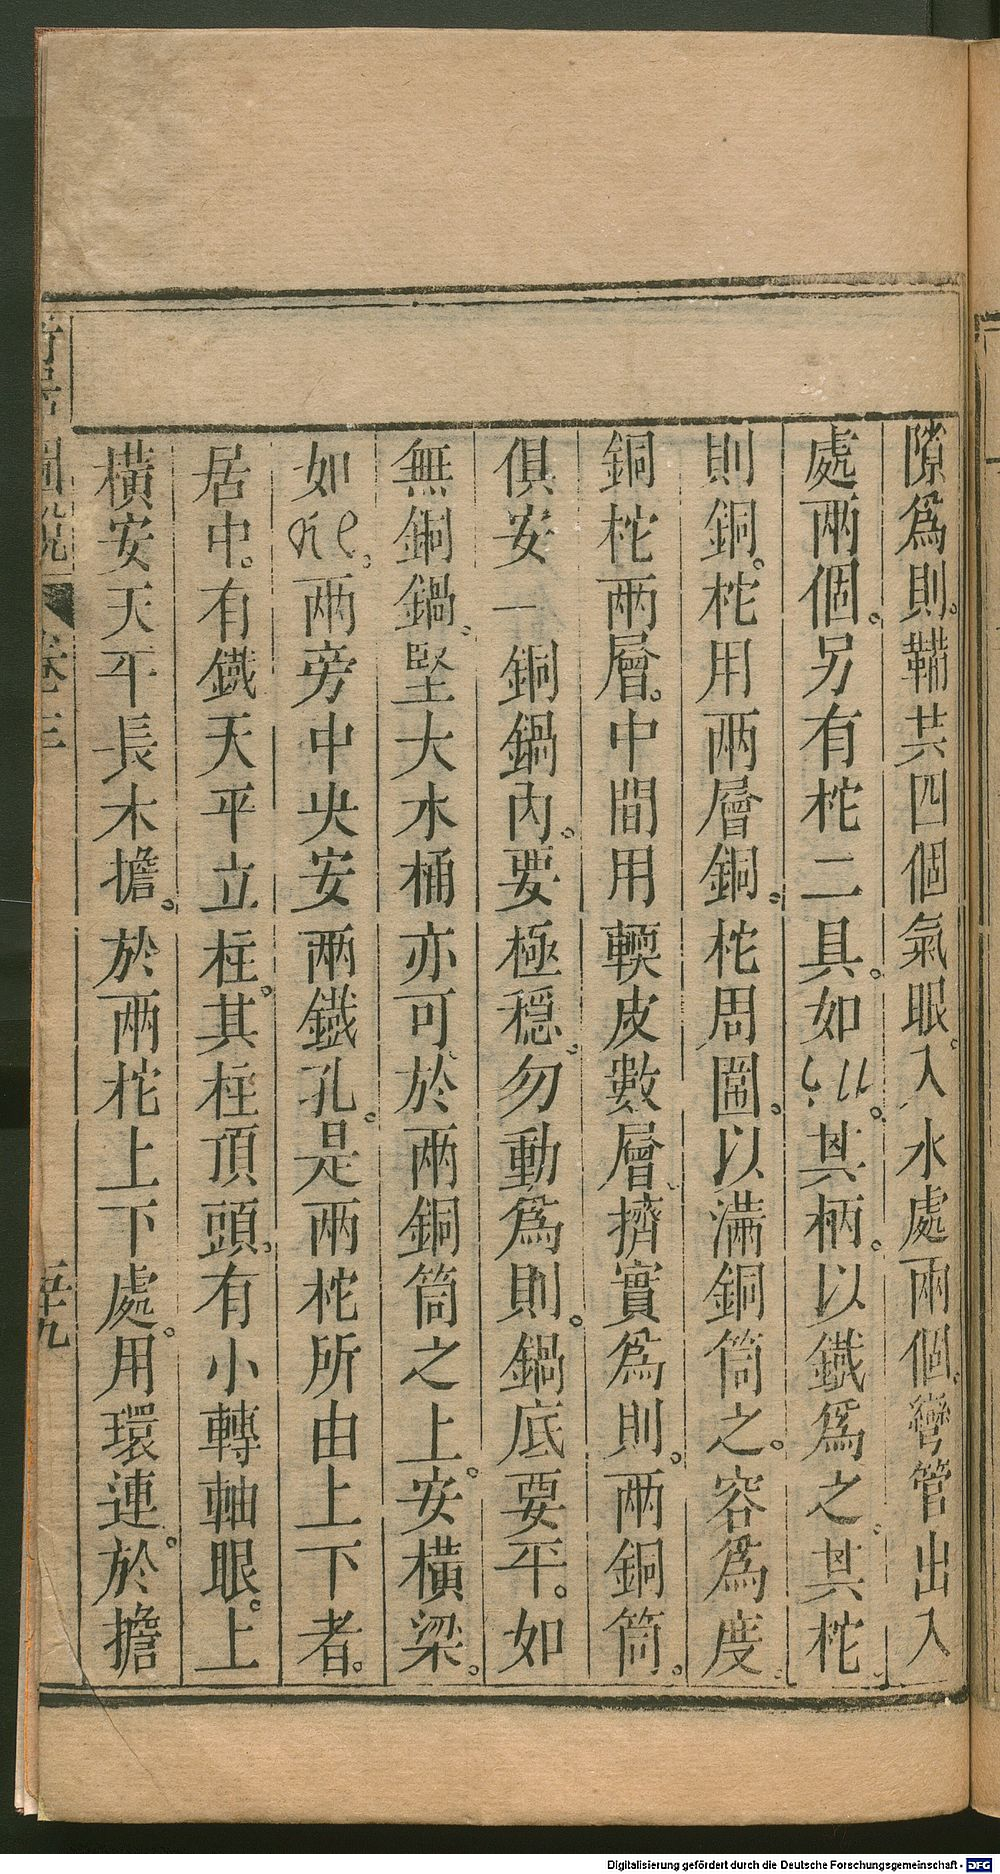 隙爲則。鞴共四個氣眼。入水處兩個。彎管出入
處兩個。另有柁二具。如ㄅ、ll。其柄。以鐵爲之。其柁
則銅。柁用兩層銅。柁周圍。以滿銅筒之。容爲度。
銅柁兩層。中間用輭皮數層。擠實爲則。兩銅筒。
俱安一銅鍋內。要極穩。勿動爲則。鍋底要平。如
無銅鍋。堅大水桶亦可。於兩銅筒之上。安橫梁。
如 兩旁中央安兩鐵孔。是兩柁所由上下者。
居中。有鐵天平立柱。其柱頂頭。有小轉軸眼。上
橫安天平長木擔。於兩柁上下處。用環連。於擔
圖說 卷三 五十九
Digitalisierung gefördert durch die Deutsche Forschungsgemeinschaft - DFG